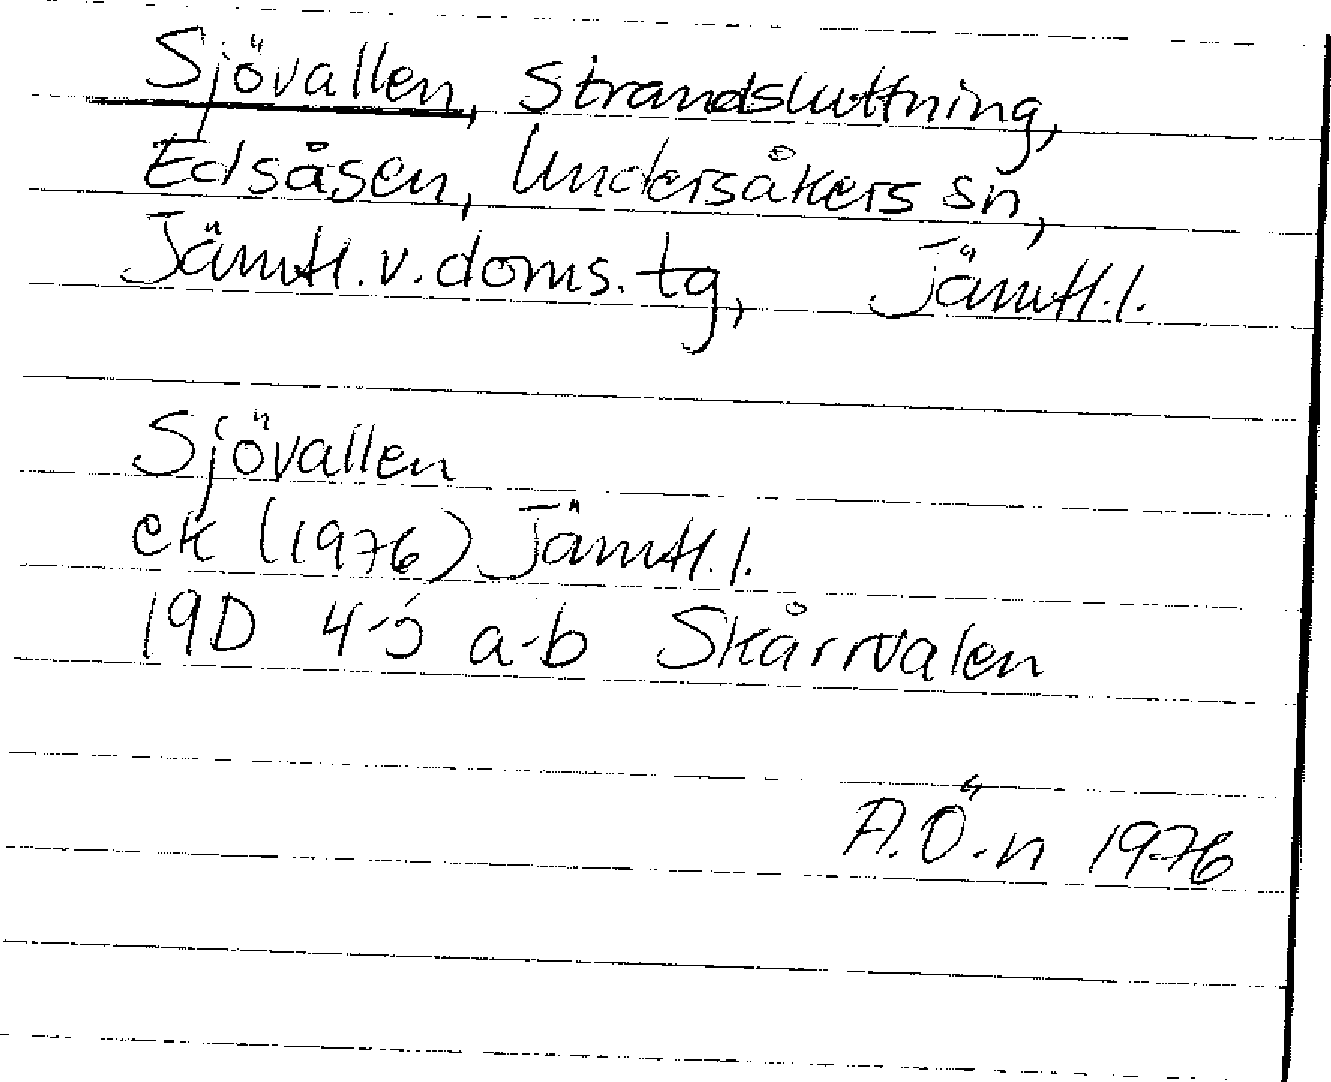 Sjövallen, Strandsluttning,
Edsåsen, Undersåkers sn,
Jämtl.v.doms.tg, Jämtl.l.
Sjövallen
ek (1976) Jämtl.l.
19D 4-5 a-b Skårrvalen
A.Ö-n 1976